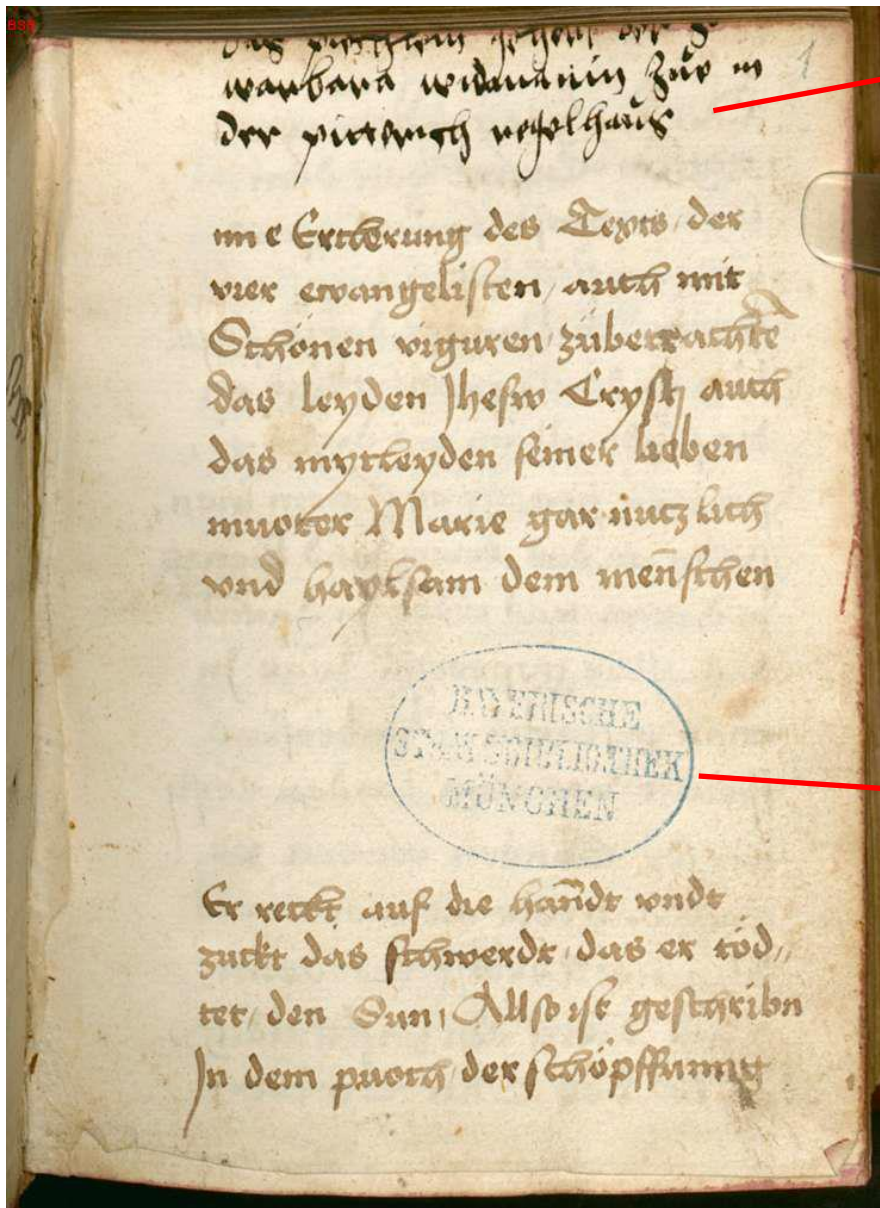 BSB
1
das püechlein gehört der S
warbara widmanin Zuv in
der pitterich regelhaus
im e Ercklerung des Texts der
vier ewangelisten / auch mit
Schönen viguren zübetrachtē
das leyden Jhesw Crysti auch
das mytleyden seiner lieben
muoter Marie gar nutzlich
vnd haylsam dem meñschen
BAYERISCHE
STAATSBIBLIOTHEK
MÜNCHEN
Er reckt auf die hañdt vndt
zuckt das schwerdt / das er töd„
tet / den Sun / Allso ist geschribn
Jn dem puoch der schöpffunng